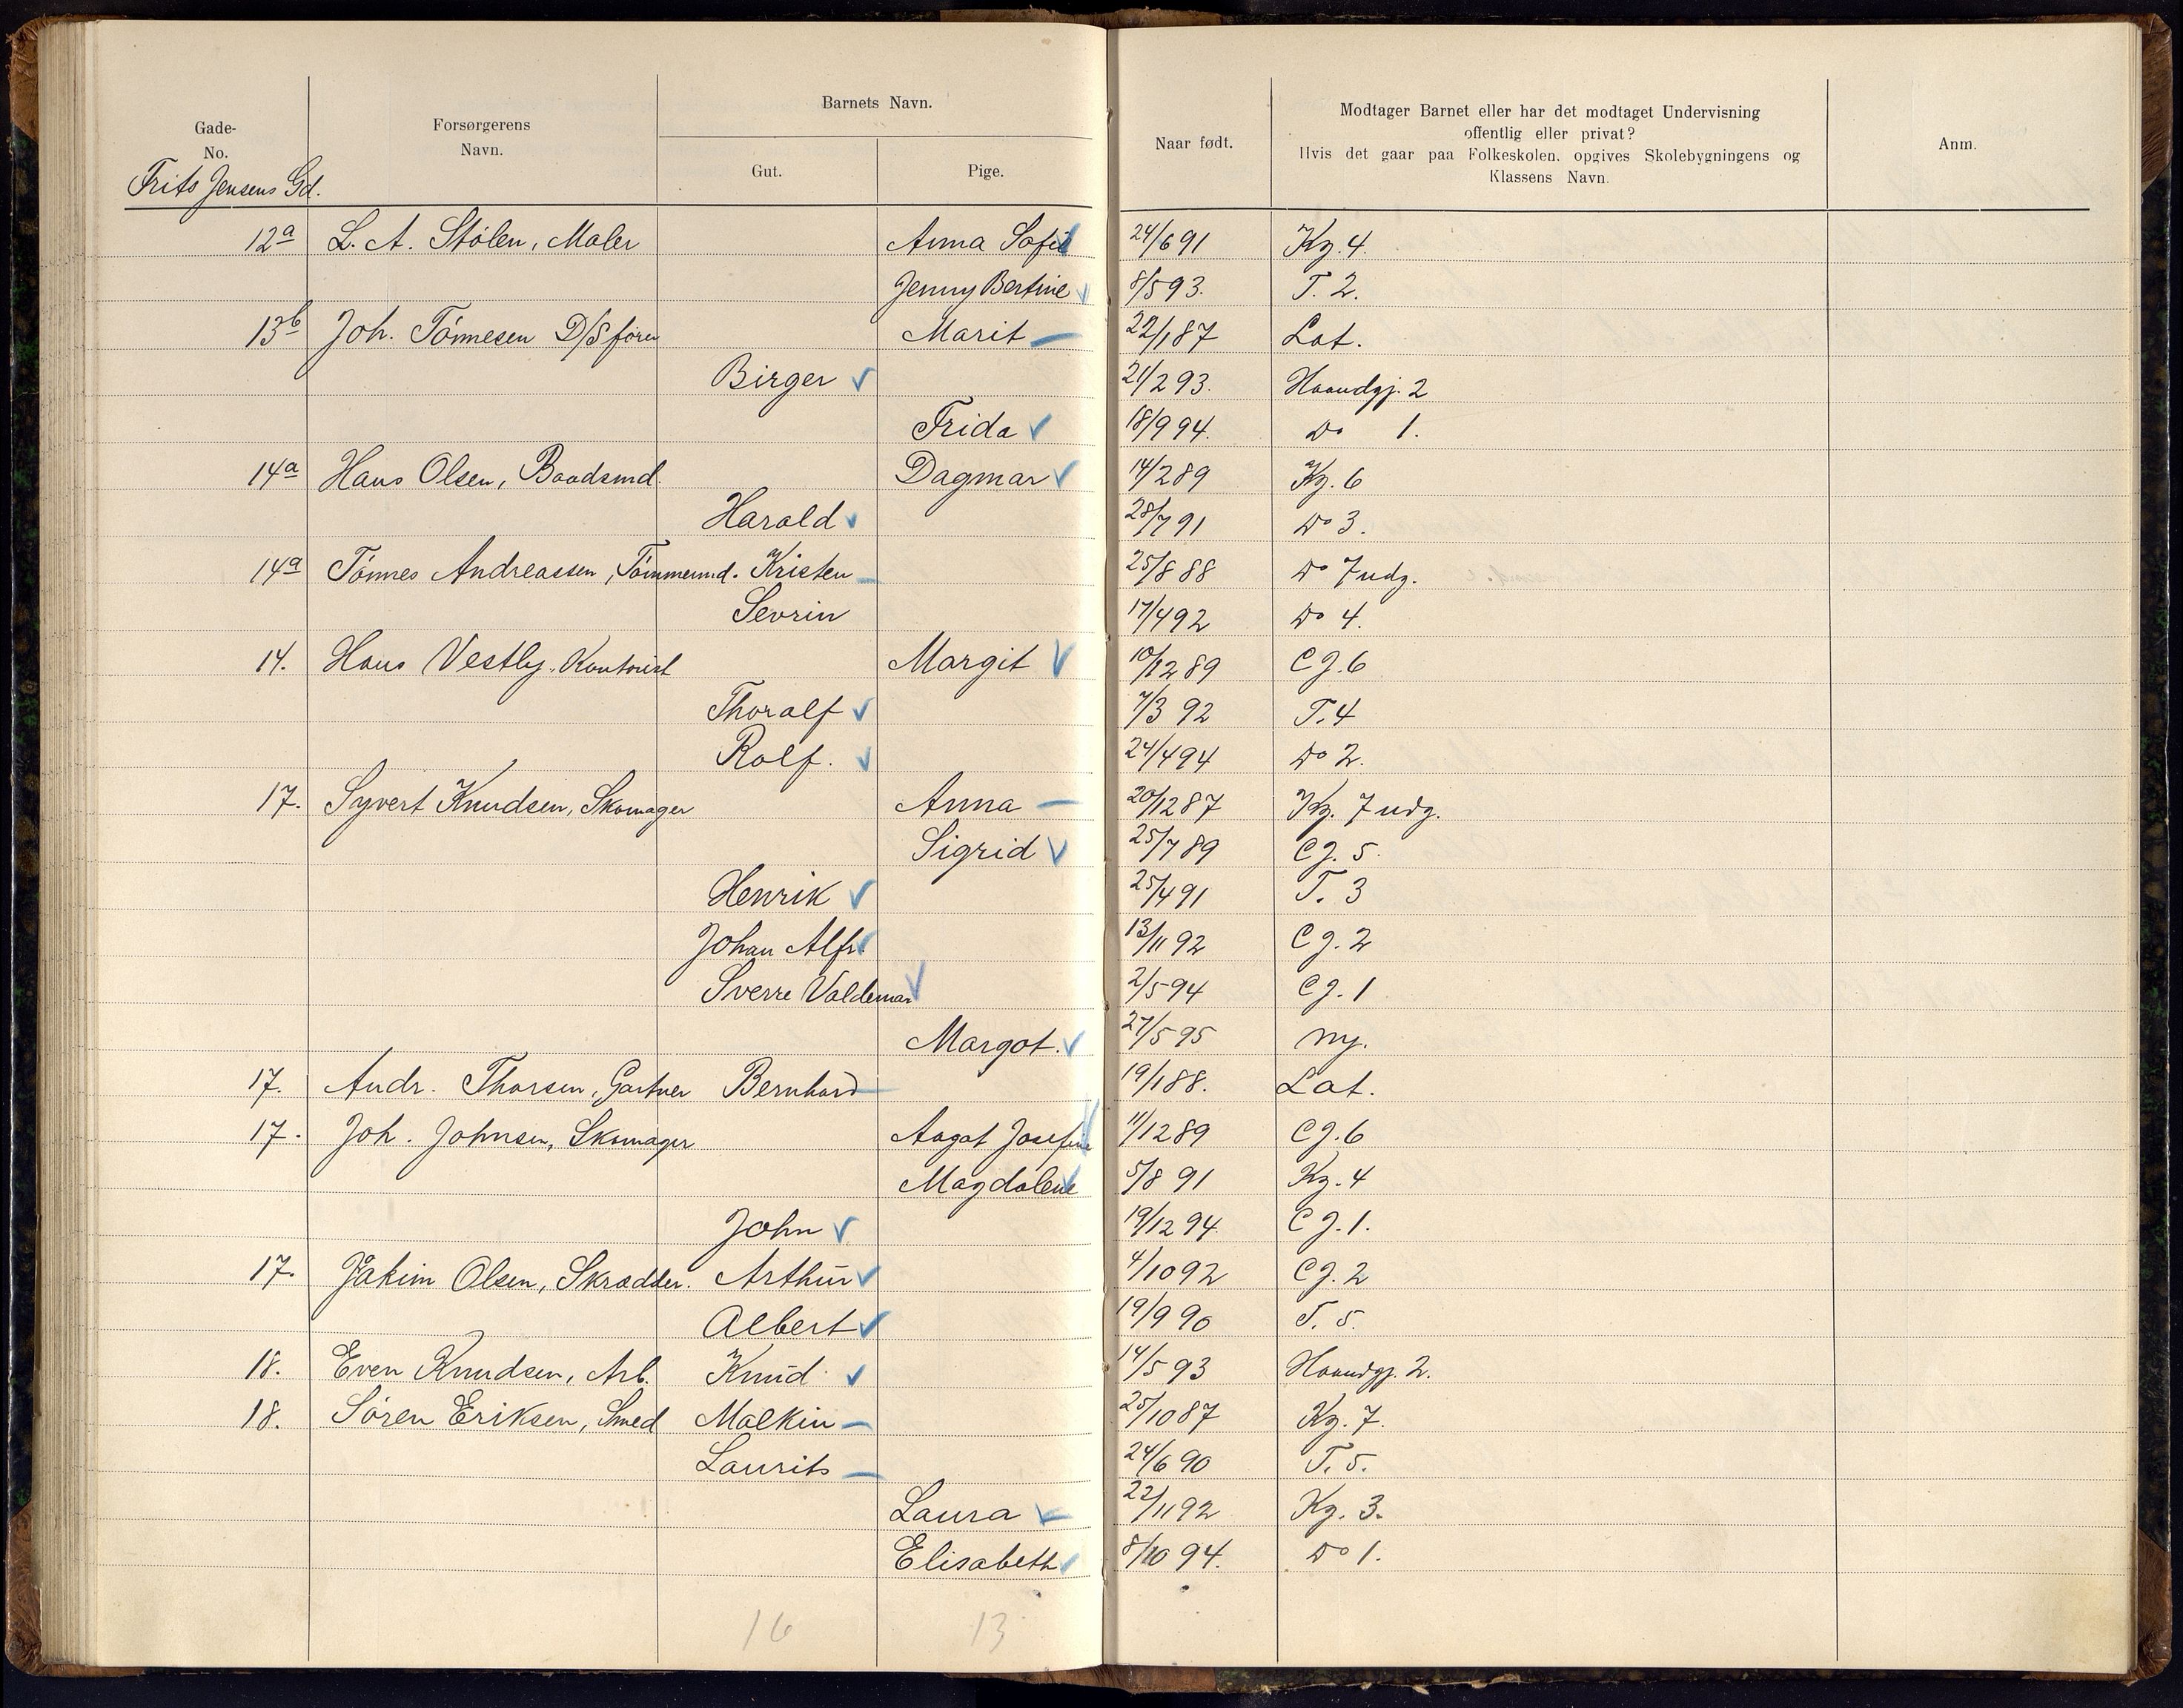 Gade-
No.
Forsørgerens
Navn.
Barnets Navn.
Gut.
Pige.
Naar født.
Modtager Barnet eller har det modtaget Undervisning
offentlig eller privat?
Hvis det gaar paa Folkeskolen, opgives Skolebygningens og
Klassens Navn.
Anm.
Frits Jensens Gd.
12a L. A. Stølen, Maler Anna Sofie 24/6 91 Kg. 4.
Jenny Bertine 8/5 93. T. 2.
13b Joh. Tønnesen D/S fører Marit 22/1 87 Lat.
Birger 21/2 93. Haandgj. 2
Frida 18/9 94. Do 1.
14a Hans Olsen, Baadsmd. Dagmar 14/2 89 Kg. 6
Harald 28/7 91 Do 3.
14a Tønnes Andreassen, Tømmermd. Kristen 25/8 88 Do 7 udg.
Sevrin 17/4 92 Do 4.
14. Hans Vestly, Kontorist Margit 10/12 89 CJ. 6
Thoralf 7/3 92 T. 4
Rolf. 24/4 94 Do 2.
17. Syvert Knudsen, Skomager Anna 20/12 87 Kg. 7 udg.
Sigrid 25/7 89 CJ. 5.
Henrik 25/4 91 T. 3
Johan Alfr. 13/11 92 CJ. 2
Sverre Valdemar 2/5 94 CJ. 1
Margot. 27/5 95 ny.
17. Andr. Thorsen, Gartner Bernhard 19/1 88. Lat.
17. Joh. Johnsen, Skomager Aagot Josefine 11/12 89 CJ. 6
Magdalene 5/8 91 Kg. 4
John 19/12 94 CJ. 1.
17. Jakim Olsen, Skrædder. Arthur 4/10 92 CJ. 2
Albert 19/9 90 T. 5.
18. Even Knudsen, Arb. Knud 14/5 93 Haandgj. 2.
18. Søren Eriksen, Smed Malkin 25/10 87 Kg. 7.
Laurits 24/6 90 T. 5.
Laura 22/11 92 Kg. 3.
Elisabeth 8/10 94. Do 1.
16 13